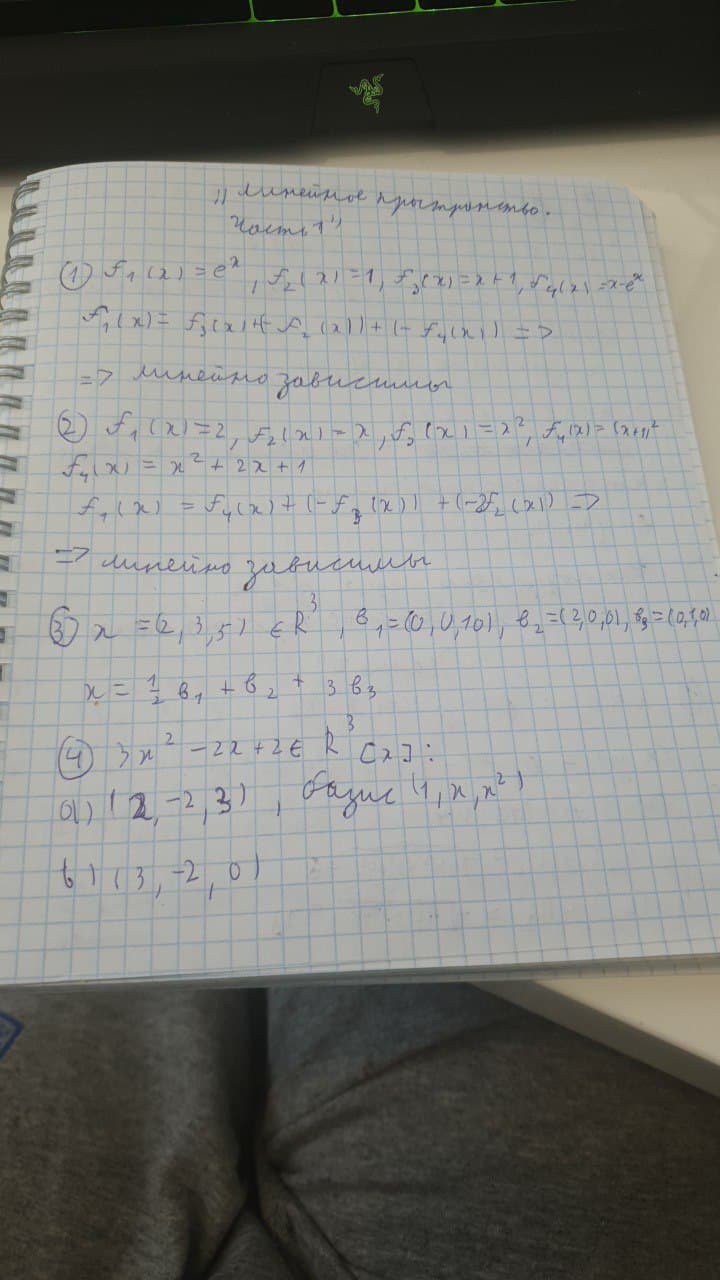 "Линейное пространство.
Часть 1"
① f₁(x) = eˣ, f₂(x) = 1, f₃(x) = x+1, f₄(x) = x-eˣ
f₁(x) = f₃(x)+(- f₂(x)) + (- f₄(x)) =>
=> линейно зависимы
② f₁(x) = 2, f₂(x) = x, f₃(x) = x², f₄(x) = (x+1)²
f₄(x) = x² + 2x + 1
f₁(x) = f₄(x) + (-f₃(x)) + (-2f₂(x)) =>
=> линейно зависимы
③ x = (2, 3, 5) ∈ R³, в₁=(0, 0, 10), в₂=(2,0,0), в₃=(0,1,0)
x = ½ в₁ + в₂ + 3 в₃
④ 3x² - 2x + 2 ∈ R³[x]:
а) (2, -2, 3), базис (1, x, x²)
в) (3, -2, 0)